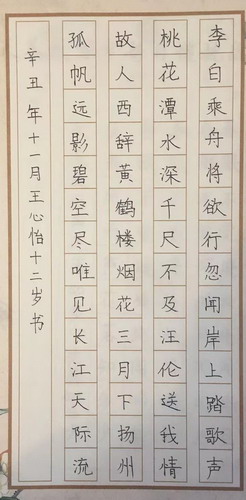 李白乘舟将欲行忽闻岸上踏歌声
桃花潭水深千尺不及汪伦送我情
故人西辞黄鹤楼烟花三月下扬州
孤帆远影碧空尽唯见长江天际流
辛丑年十一月王心怡十二岁书